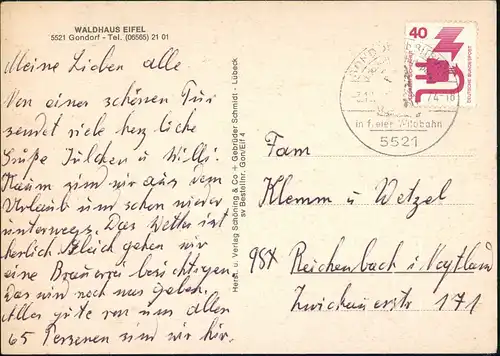 WALDHAUS EIFEL
5521 Gondorf - Tel. (06565) 21 01
Meine Lieben alle
Von einer schönen Tur
sendet viele herzliche
Grüße Julchen u. Willi.
Kaum sind wir aus dem
Urlaub und schon wieder
unterwegs. Das Wetter ist
herlich. Gleich gehen wir
eine Brauerei besichtigen
Das wird noch was geben.
Alles gute von uns allen
65 Personen sind wir hir.
Herst. u. Verlag Schöning & Co + Gebrüder Schmidt - Lübeck
sv Bestellnr. Gon/Eif 4
40
DEUTSCHE BUNDESPOST
74-18
in freier Wildbahn
5521
Fam
Klemm u Wetzel
98X Reichenbach i Vogtland
Zwickauerstr 171